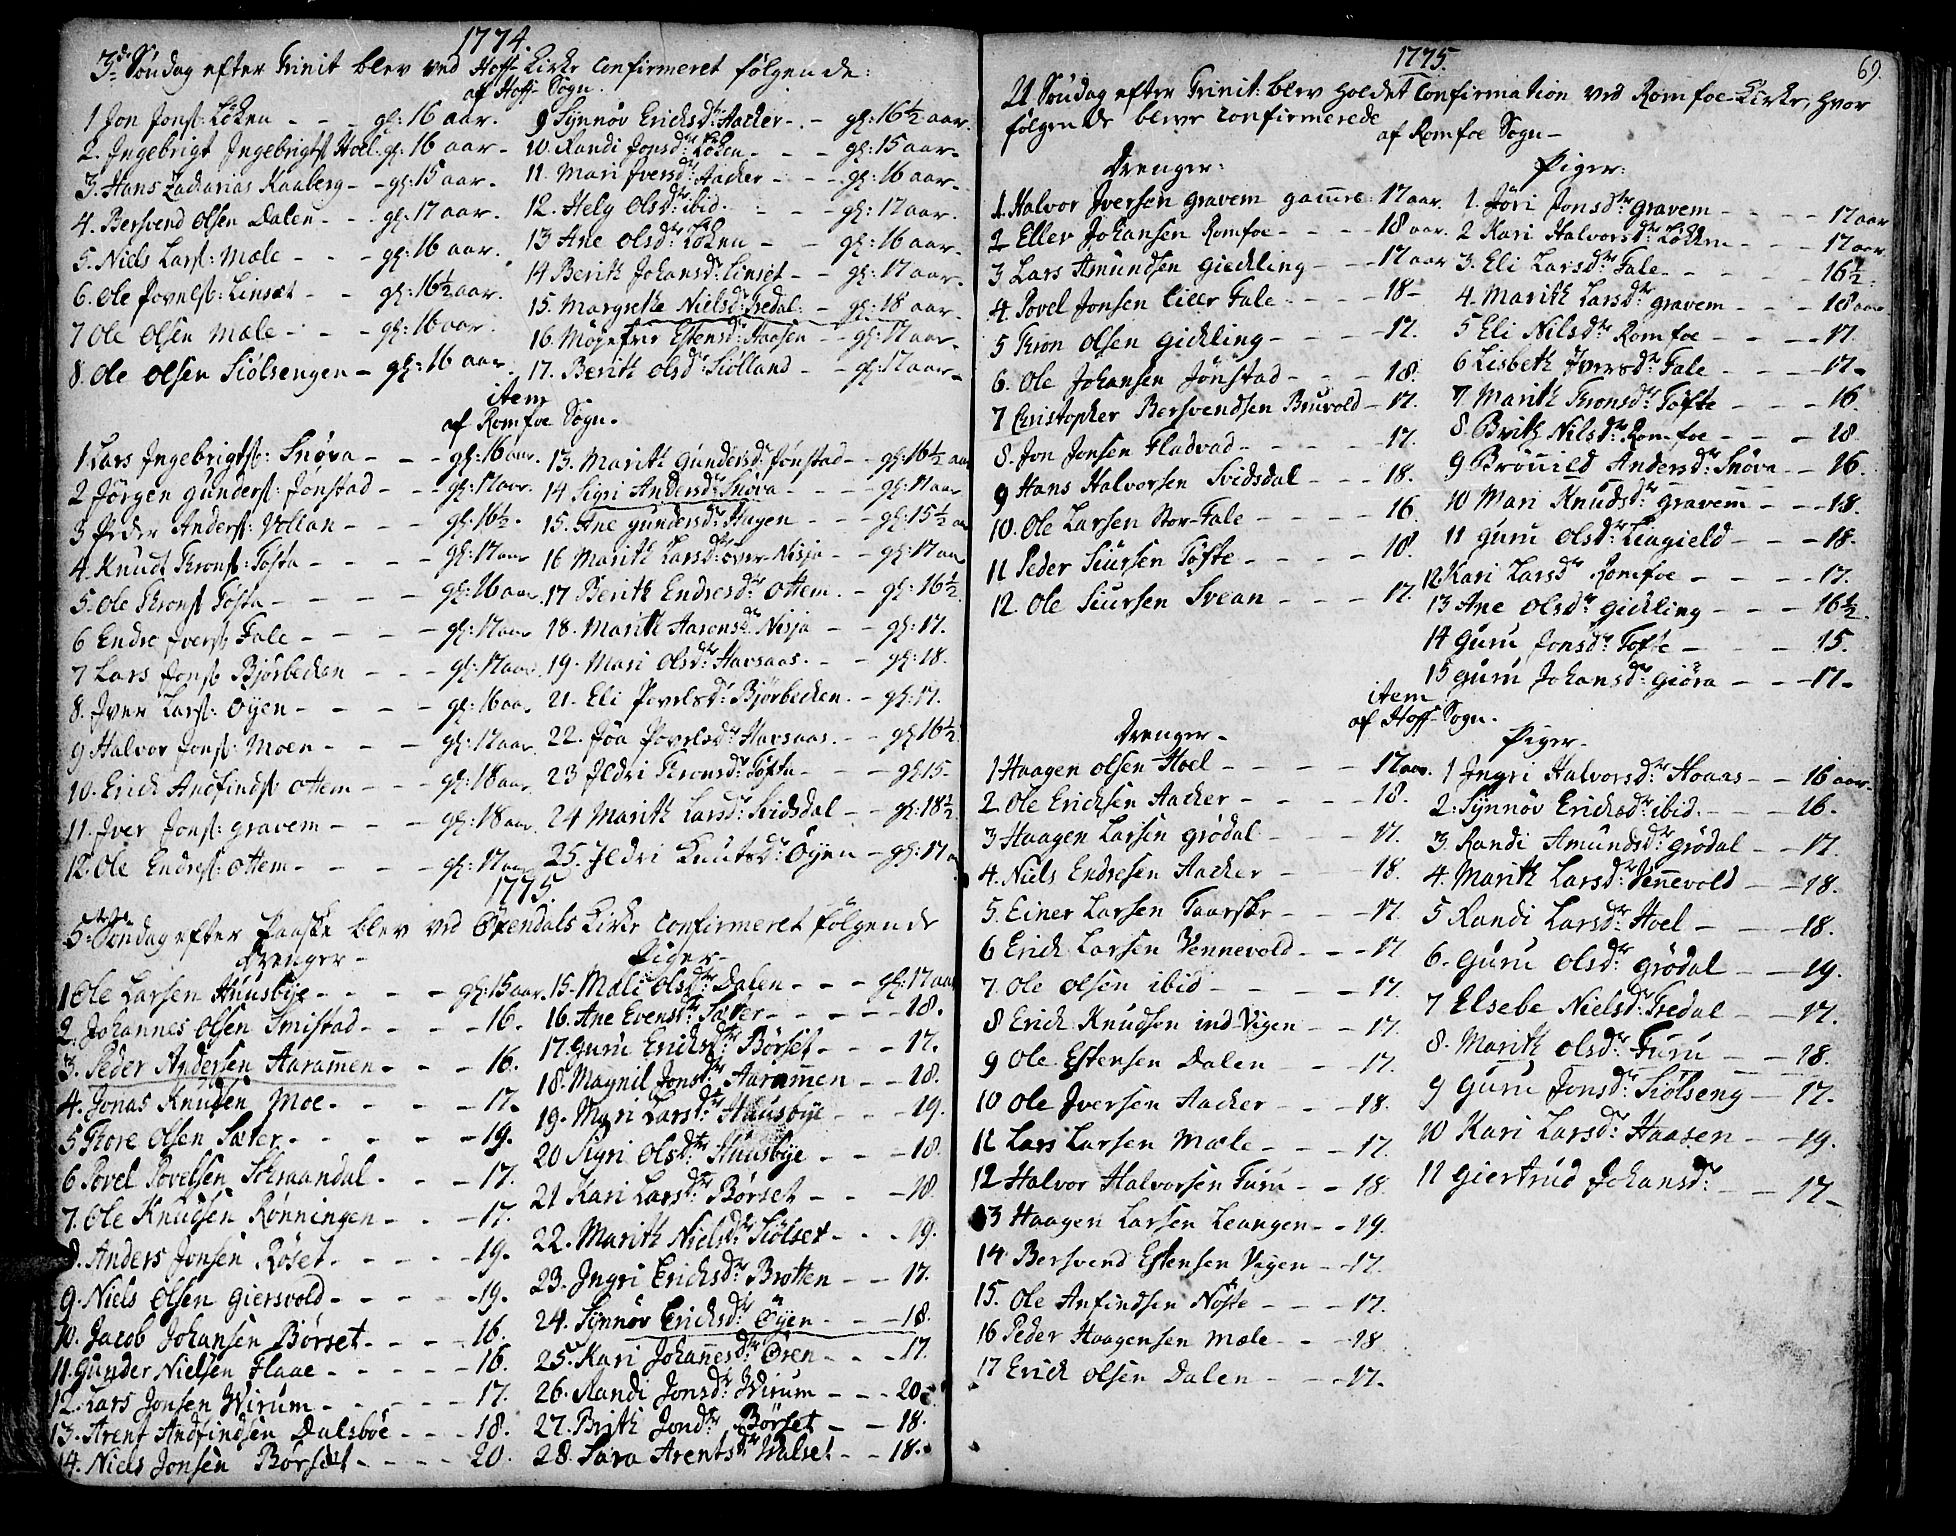 1774.
3de Söndag efter Trinit blev ved Hoff-Kirke Confirmeret følgende:
af Hoff-Sogn.
1 Jon Jonss: Löken - - - gl: 16 aar.
2. Ingebrigt Ingebrigts: Hoel. gl: 16 aar -
3. Hans Zacharias Kaaberg - - gl: 15 aar.
4. Bersvend Olsen Dalen - - - gl: 17 aar.
5. Niels Larss: Mæle - - - gl: 16 aar.
6. Ole Povelss: Linset - - gl: 16½ aar.
7 Ole Olsen Mæle - - - gl: 16 aar.
8. Ole Olsen Siölsengen - gl: 16 aar.
9 Synnöv Ericksdr: Aacker - - gl: 16½ aar.
10. Randi Jonsdr: Löken - - - gl: 15 aar.
11. Mari Iversdr: Aacker - - - gl: 16 aar.
12. Helg Olsdr: ibid. - - - gl: 17 aar.
13 Ane Olsdr: Löken - - gl: 16 aar.
14 Berith Johansdr: Linset - - gl: 17 aar.
15. Margrethe Nielsdr: Tredal - gl: 18 aar.
16. Estensdr: Haasen - - gl: 17 aar.
17. Berith Olsdr: Siölland - - gl: 17 aar.
item
af Romfoe Sogn.
1 Lars Ingebrigtss: Snöva - - - gl: 16 aar.
2 Jörgen Gunderss: Jönstad - - - gl: 17 aar.
3 Peder Anderss: Vollan - - - gl: 16½.
4. Knudt Tronss: Töfta - - - - gl: 17 aar
5. Ole Tronss Töfta - - - - - gl: 16 aar.
6 Endre Iverss: Fale - - - - gl: 17 aar
7 Lars Jonss: Bjørbecken - - - gl: 17 aar.
8. Iver Larss: Öyen - - - - - gl: 16 aa.
9 Halvor Jonss: Moen - - - - gl: 17 aar.
10. Erick Andfindss: Ottem - - - gl: 18 aar.
11. Iver Jonss: Gravem - - - - gl: 18 aar.
12. Ole Endress: Ottem - - - gl: 17 aar
13. Marith Gundersdr: Jönstad - - gl: 16½ aar
14 Sigri Andersdr: Snöva - - - - gl: 17 aar
15. Ane Gundersdr: Hagen - - - gl: 15½ a
16 Marith Larsdr: Över Nisja - - gl: 17 aar
17 Berith Endresdr: Ottem. - - gl: 16½.
18. Marith Aaronsdr: Nisja - - gl: 17.
19. Mari Olsdr: Havsaas. - - gl: 18.
21. Eli Povelsdr: Bjørbecken. - gl: 17.
22. Joa Povelsdr: Havsaas. - - gl: 16½
23 Ildri Tronsdr: Töfta - - - gl: 15 -
24 Marith Larsdr: Svidsdal - - gl: 18½
25. Ildri Knutsdr: Öyen - gl: 17 a
1775.
5te Söndag efter Paaske blev ved Öxendals Kirke Confirmeret følgende
Drenger -
1 Ole Larsen Huusbye - - - - gl: 15 aar.
2. Johannes Olsen Smistad - - - - 16.
3. Peder Andersen Aaramen - - - 16.
4. Jonas Knudsen Moe. - - - - 17.
5 Tore Olsen Sæter. - - - - - 19.
6 Povel Povelsen Schraandal. - - - 17.
7. Ole Knudsen Rönningen - - - 17.
8. Anders Jonsen Röset. - - - - 19.
9. Niels Olsen Giersvold - - - - - 19.
10. Jacob Johansen Börset - - - - 16.
11. Gunder Nielsen Flaae - - - - - 16.
12. Lars Jonsen Wirum - - - - - 17.
13. Arent Andfindsen Dalsböe - - - 18.
14. Niels Jonsen Börset - - - - 20.
Piger -
15. Mali Olsdr: Dalen - - - gl: 17 aar
16. Ane Evensdr: Sæter - - - - - 18.
17. Guru Ericksdr: Börset - - - 17.
18. Magnil Jonsdr: Aaramen - - 18.
19. Mari Larsdr: Huusbye - - - 19.
20 Sigri Olsdr: Huusbye - - - 18.
21 Kari Larsdr: Börset - - - 18.
22. Marith Nielsdr: Siölset - - - 19.
23. Ingri Ericksdr: Brotten - - 17.
24. Synnöv Ericksdr: Öyen - - - 18.
25. Kari Johanesdr: Ören - - - 17.
26. Randi Jonsdr: Wirum - - - 20 -
27. Brith Jondr: Börset - - 18.
28. Sara Arentsdr: Walset - - 18.
1775.
69.
21 Söndag efter Trinit: blev holdet Confirmation ved Romfoe-Kirke, hvor
følgende bleve Confirmerede
af Romfoe Sogn -
Drenger:
1. Halvor Iversen Gravem gamme: 17 aar.
2 Eller Johansen Romfoe - - - - 18 aar.
3 Lars Amundsen Gickling - - - 17 aar
4. Povel Jonsen Lille Fale - - - - 18 -
5 Tron Olsen Gickling - - - - 17.
6. Ole Johansen Jönstad - - - - 18.
7 Christopher Bersvendsen Bruvold - 17.
8. Jon Jonsen Fladvad - - - - - 17.
9 Hans Halvorsen Svidsdal - - - 18.
10. Ole Larsen Stor-Fale - - - - 16.
11 Peder Siursen Töfte - - - - - 18.
12. Ole Siursen Svean - - - 17.
Piger:
1. Jöri Jonsdr: Gravem - - - - 17 aar
2 Kari Halvorsdr: Löken - - - 17 aar
3. Eli Larsdr: Fale - - - - - 16½.
4. Marith Larsdr: Gravem - - - 18 aar
5 Eli Nilsdr: Romfoe - - - - 17.
6 Lisbeth Iversdr: Fale - - - - 17 -
7. Marith Tronsdr: Töfte - - - 16.
8. Brith Nilsdr: Romfoe - - - 18
9 Brönild Andersdr: Snöva - - 16.
10 Mari Knudsdr: Gravem - - - 18.
11 Guru Olsdr: Leagield - - - 18.
12. Kari Larsdr Romfoe - - - - 17.
13 Ane Olsdr: Gickling - - - 16½.
14 Guru Jonsdr: Töfte - - - - 15.
15 Guru Johansdr: Giöra - - - 17 -
item
af Hoff-Sogn.
Drenger -
1 Haagen Olsen Hoel - - - - - 17 aar.
2. Ole Ericksen Aacker - - - - 18.
3 Haagen Larsen Grödal - - - - 17.
4. Niels Endresen Aacker - - - 18.
5. Einer Larsen - - - 17.
6 Erick Larsen Vennevold - - - 17
7. Ole Olsen ibid - - - - - 17.
8 Erick Knudsen ind Vigen - - 17.
9 Ole Estensen Dalen - - 17.
10 Ole Iversen Aacker - - - 18.
11 Lars Larsen Mæle - - - 17.
12 Halvor Halvorsen Furu - - 18.
13 Haagen Larsen Leangen - - 19.
14 Bersvend Estensen Vigen - 17.
15. Ole Anfindsen Nöste - - - 17.
16 Peder Haagensen Mæle - - 18
17 Erick Olsen Dalen - - - 17.
Piger -
1 Ingri Halvorsdr: Hoaas - - 16 aar.
2. Synnöv Ericksdr: ibid. - - - 16.
3. Randi Amundsdr: Grödal - - 17.
4. Marith Larsdr: Vennevold - - 18.
5 Randi Larsdr: Hoel - - - 18.
6. Guru Olsdr: Grödal - - 19.
7 Elsebe Nielsdr: Tredal - - 17.
8. Marith Olsdr: Furu - - 18.
9 Guru Jonsdr: Siölseng - 17.
10 Kari Larsdr: Haasen - - 19.
11 Giertrud Johansdr: - - 17 -